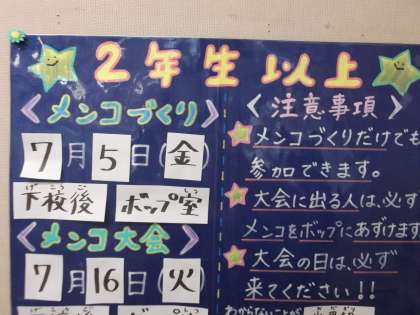 2年生以上
〈メンコづくり〉
7月5日(金)
げこうご しつ
下校後 ボップ室
メンコ大会
7月16日(火)
〈注意事項〉
メンコづくりだけでも
参加できます。
大会に出る人は、必ず
メンコをボップにあずけます
大会の日は、必ず
来てください!!
わからないことが